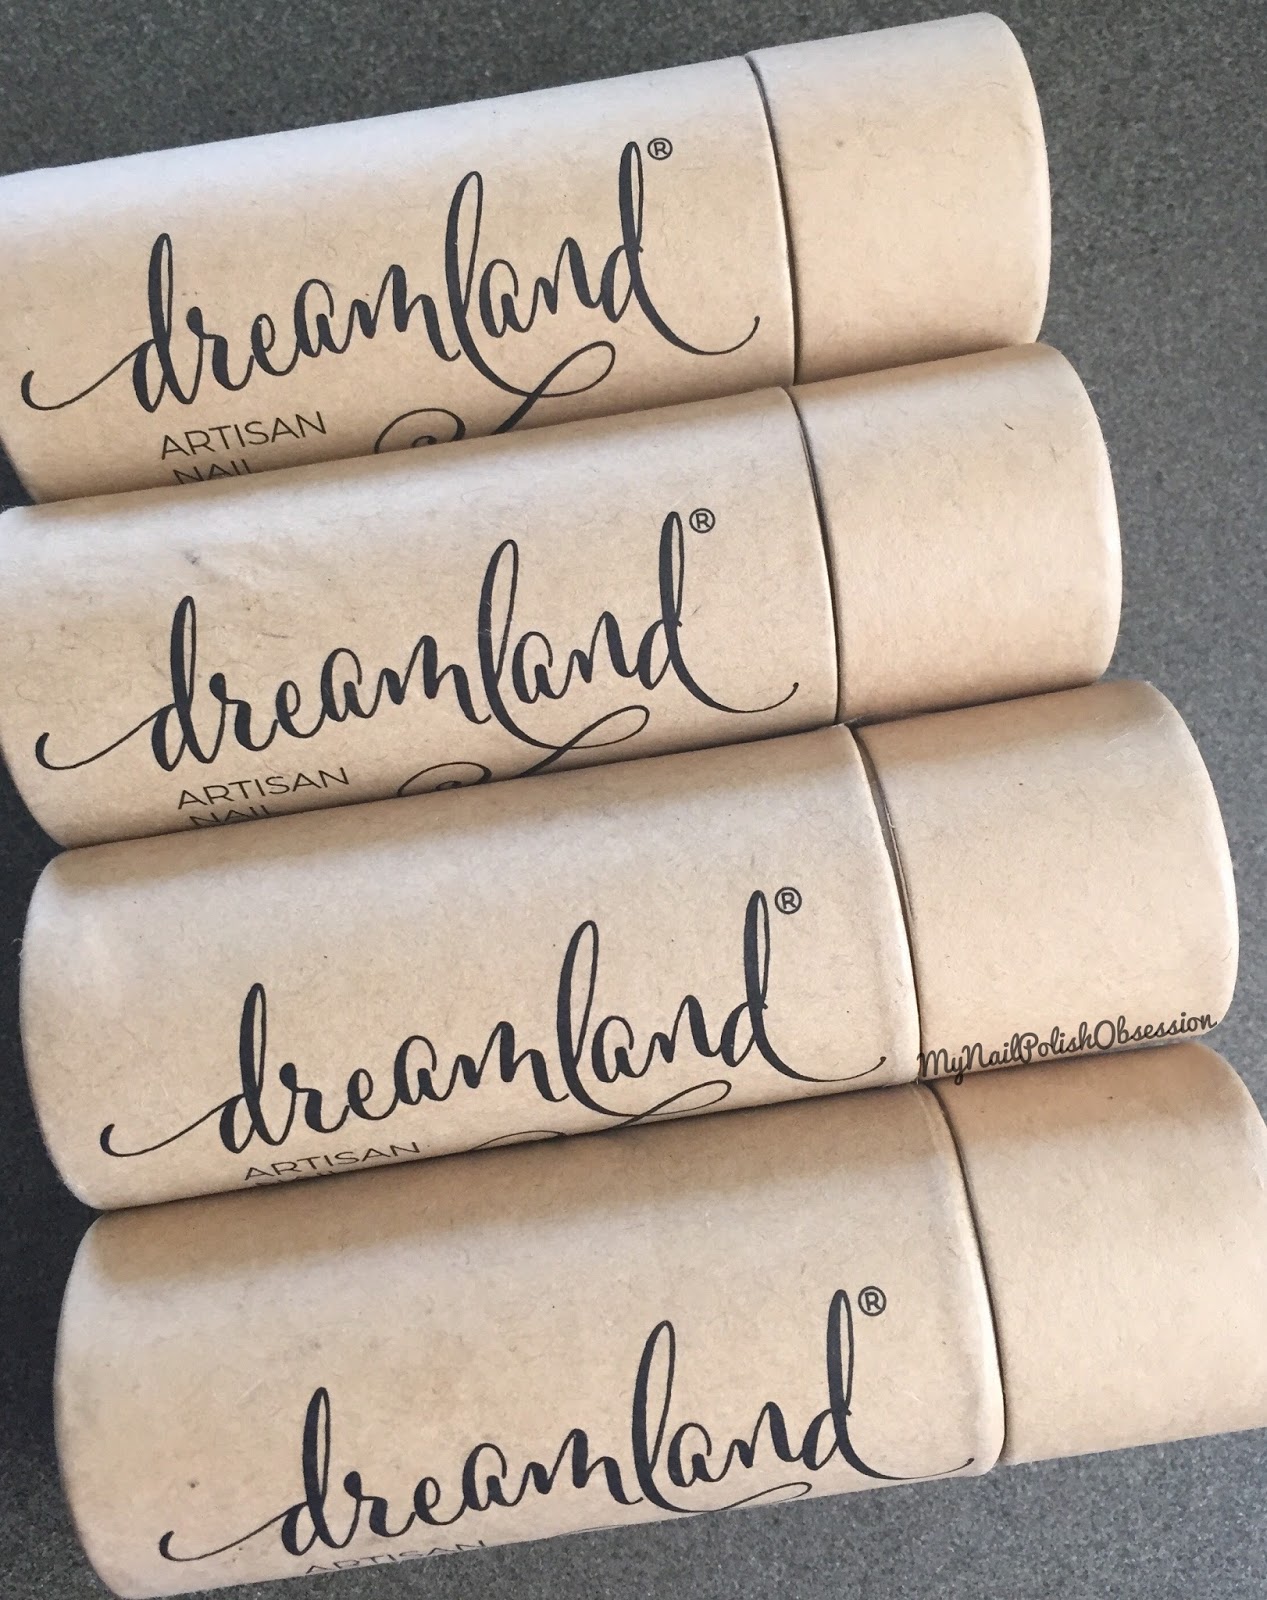 dreamland®
ARTISAN
NAIL
dreamland®
ARTISAN
NAIL
dreamland®
ARTISAN
MyNailPolishObsession
dreamland®
ARTISAN